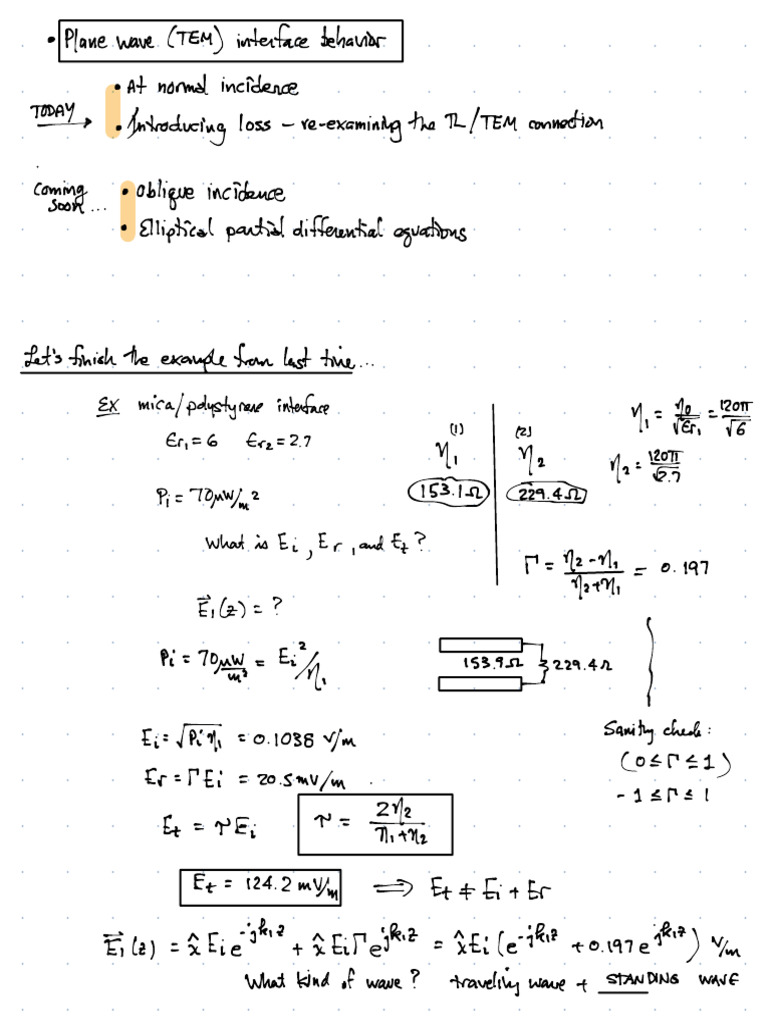 • Plane wave (TEM) interface behavior
TODAY →
• At normal incidence
• Introducing loss – re-examining the TL/TEM connection
Coming soon...
• Oblique incidence
• Elliptical partial differential equations
Let's finish the example from last time...
EX mica/polystyrene interface
εr₁ = 6 εr₂ = 2.7
Pi = 70μW/m²
What is Ei, Er, and Et?
E⃗₁(z) = ?
(1) (2)
η₁ η₂
153.1Ω 229.4Ω
η₁ = η₀/√εr₁ = 120π/√6
η₂ = 120π/√2.7
Γ = (η₂ - η₁)/(η₂ + η₁) = 0.197
Pi = 70μW/m² = Ei²/η₁
153.9Ω 229.4Ω
Sanity check:
(0 ≤ Γ ≤ 1)
-1 ≤ Γ ≤ 1
Ei = √(Pi η₁) = 0.1038 V/m
Er = ΓEi = 20.5mV/m
Et = τEi
τ = 2η₂/(η₁+η₂)
Et = 124.2 mV/m ⟹ Et ≠ Ei + Er
E⃗₁(z) = x̂ Ei e^(-jk₁z) + x̂ EiΓe^(jk₁z) = x̂Ei (e^(-jk₁z) + 0.197 e^(jk₁z)) V/m
What kind of wave? traveling wave + STANDING WAVE